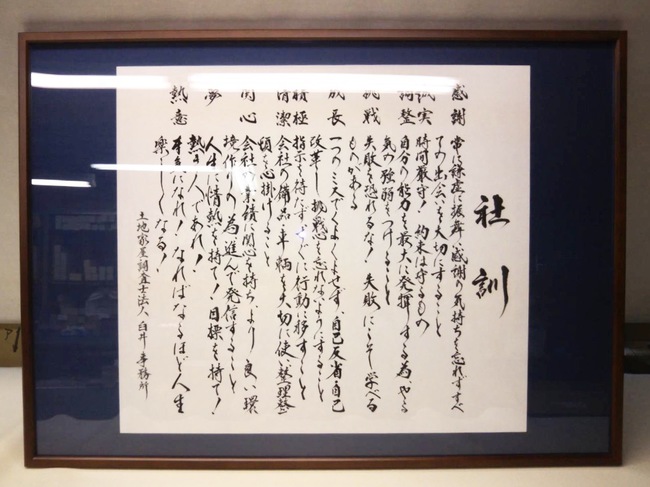 社訓
感謝 常に謙虚に振舞い感謝の気持ちを忘れずすべ
ての出会いを大切にすること
誠実 時間厳守！約束は守るもの
調整 自分の能力を最大に発揮する為、やる
気の強弱をつけること
挑戦 失敗を恐れるな！失敗にこそ学べる
ものがある
成長 一つのミスでくよくよせず、自己反省・自己
改革し、挑戦心を忘れないようにすること
積極 指示を待たずすぐに行動に移すこと
清潔 会社の備品・車輌を大切に使い整理整
頓を心掛けること
関心 会社の業績に関心を持ち、より良い環
境作りの為、進んで発信すること
夢 人生に情熱を持て！目標を持て！
熱意 熱き人であれ！
本気になれ！なればなるほど人生
楽しくなる！
土地家屋調査士法人 臼井事務所